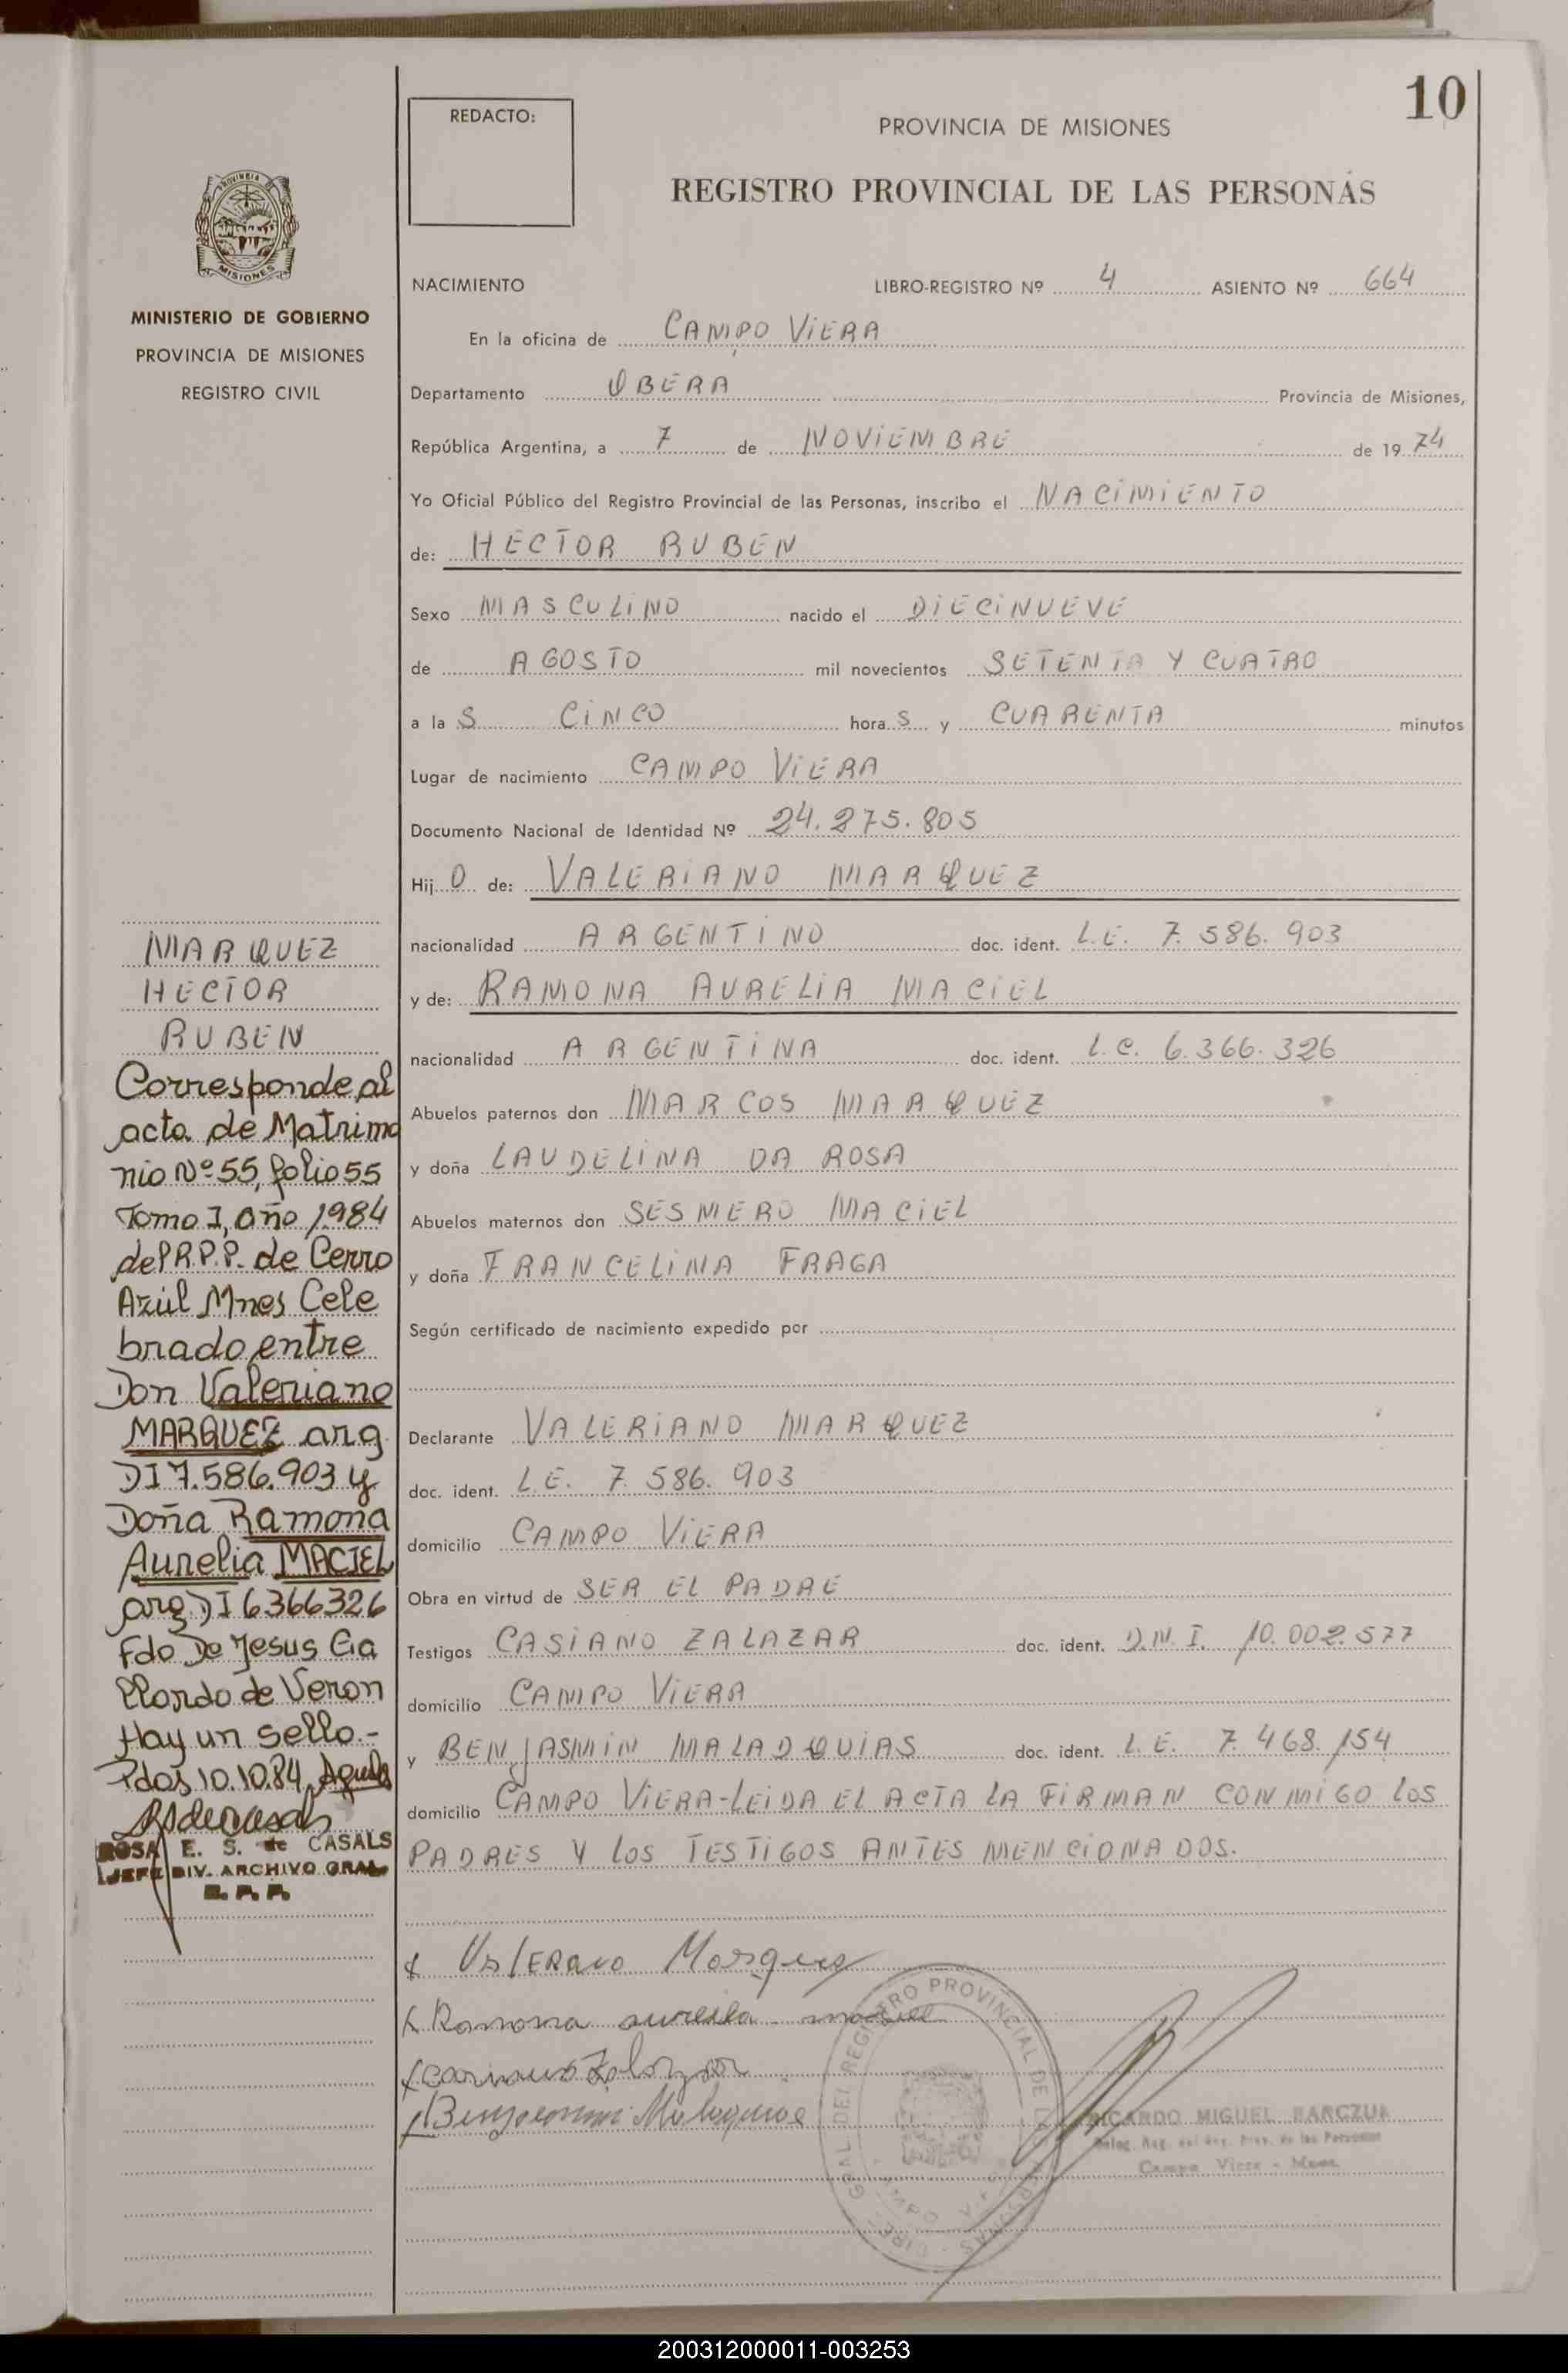 10
REDACTO:
PROVINCIA DE MISIONES
REGISTRO PROVINCIAL DE LAS PERSONAS
PROVINCIA DE
MISIONES
MINISTERIO DE GOBIERNO
PROVINCIA DE MISIONES
REGISTRO CIVIL
NACIMIENTO LIBRO-REGISTRO Nº 4 ASIENTO Nº 664
En la oficina de CAMPO VIERA
Departamento OBERA Provincia de Misiones,
República Argentina, a 7 de NOVIEMBRE de 1974
Yo Oficial Público del Registro Provincial de las Personas, inscribo el NACIMIENTO
de: HECTOR RUBEN
Sexo MASCULINO nacido el DIECINUEVE
de AGOSTO mil novecientos SETENTA Y CUATRO
a la S CINCO hora S y CUARENTA minutos
Lugar de nacimiento CAMPO VIERA
Documento Nacional de Identidad Nº 24.275.805
Hij O de: VALERIANO MARQUEZ
nacionalidad ARGENTINO doc. ident. L.E. 7.586.903
y de: RAMONA AURELIA MACIEL
nacionalidad ARGENTINA doc. ident. L.C. 6.366.326
Abuelos paternos don MARCOS MARQUEZ
y doña LAUDELINA DA ROSA
Abuelos maternos don SESMERO MACIEL
y doña FRANCELINA FRAGA
Según certificado de nacimiento expedido por
Declarante VALERIANO MARQUEZ
doc. ident. L.E. 7.586.903
domicilio CAMPO VIERA
Obra en virtud de SER EL PADRE
Testigos CASIANO ZALAZAR doc. ident. D.N.I. 10.002.577
domicilio CAMPO VIERA
y BENJASMIN MALADQUIAS doc. ident. L.E. 7.468.154
domicilio CAMPO VIERA-LEIDA EL ACTA LA FIRMAN CONMIGO LOS
PADRES Y LOS TESTIGOS ANTES MENCIONADOS.
MARQUEZ
HECTOR
RUBEN
Corresponde al
acta de Matrimo
nio Nº 55, folio 55
Tomo I, año 1984
del R.P.P. de Cerro
Azúl Mnes Cele
brado entre
Don Valeriano
MARQUEZ arg
DI 7.586.903 y
Doña Ramona
Aurelia MACIEL
arg DI 6366326
Fdo De Jesus Ga
llardo de Veron
Hay un sello.-
Pdas 10.10.84
ROSA E. S. de CASALS
JEFE DIV. ARCHIVO GRAL.
R. P. P.
Ramona aurelia maciel
REGISTRO PROVINCIAL DE LAS PERSONAS
RICARDO MIGUEL
Campo Viera - Mnes.
200312000011-003253